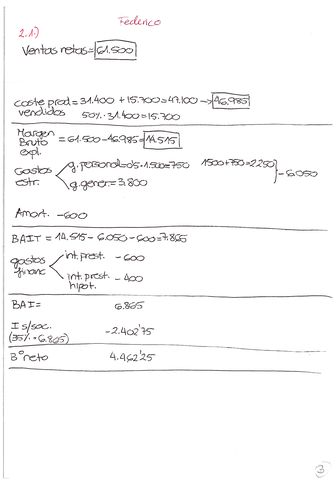 Federico
2.1.)
Ventas netas = 61.500
coste prod = 31.400 + 15.700 = 47.100 → 46.985
vendidos 50% · 31.400 = 15.700
Margen
Bruto = 61.500 - 46.985 = 14.515
expl.
Gastos g. personal = 0'5 · 1.500 = 750 1500 + 750 = 2.250
estr. - 6.050
g. gener. = 3.800
Amort. - 600
BAIT = 14.515 - 6.050 - 600 = 7.865
gastos int. prest. - 600
financ
int. prest. - 400
hipot.
BAI = 6.865
I s/soc. - 2.402'75
(35% · 6.865)
Bº neto 4.462'25
3